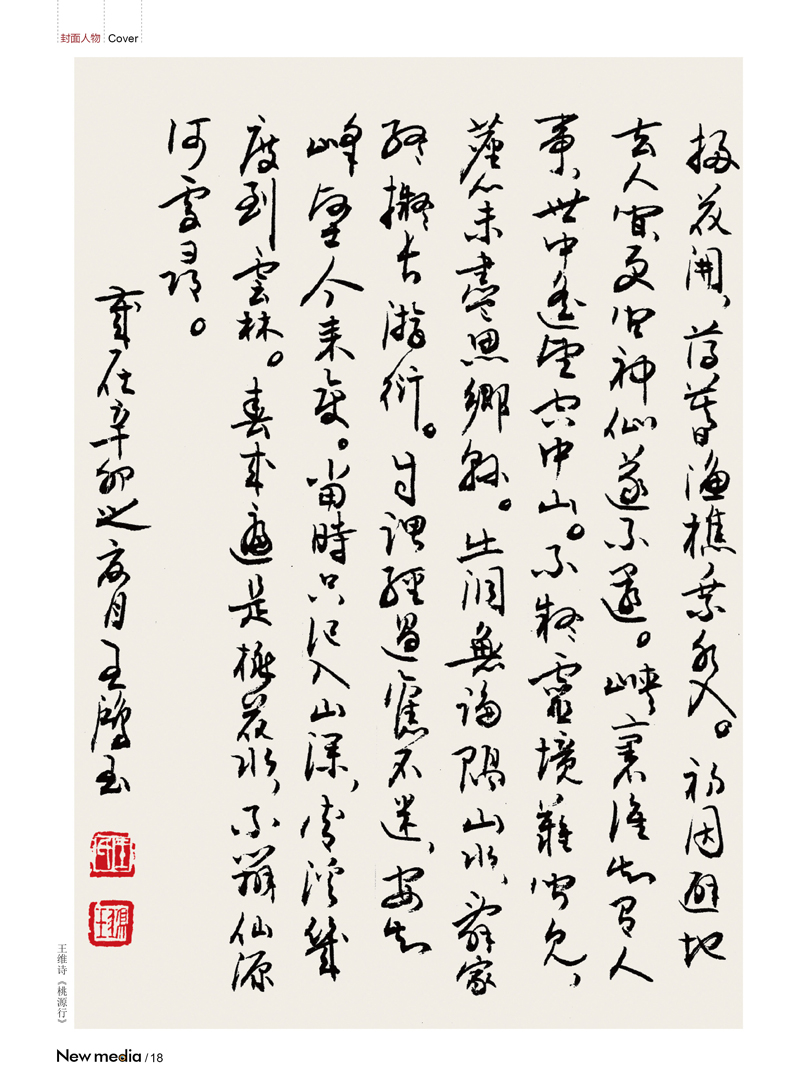 封面人物 Cover
掃花開，薄暮漁樵乘水入。初因避地
去人間更問神仙遂不還。峽裏誰知有人
事，世中遙望空中山。不疑靈境難聞見，
塵心未盡思鄉縣。出洞無論隔山水，辭家
終擬長游衍。自謂經過舊不迷，安知
峰壑今來變。當時只記入山深，青溪幾
度到雲林。春來遍是桃花水，不辨仙源
何處尋。
歲在辛卯之夏月王鴻玉
王维诗《桃源行》
New media / 18